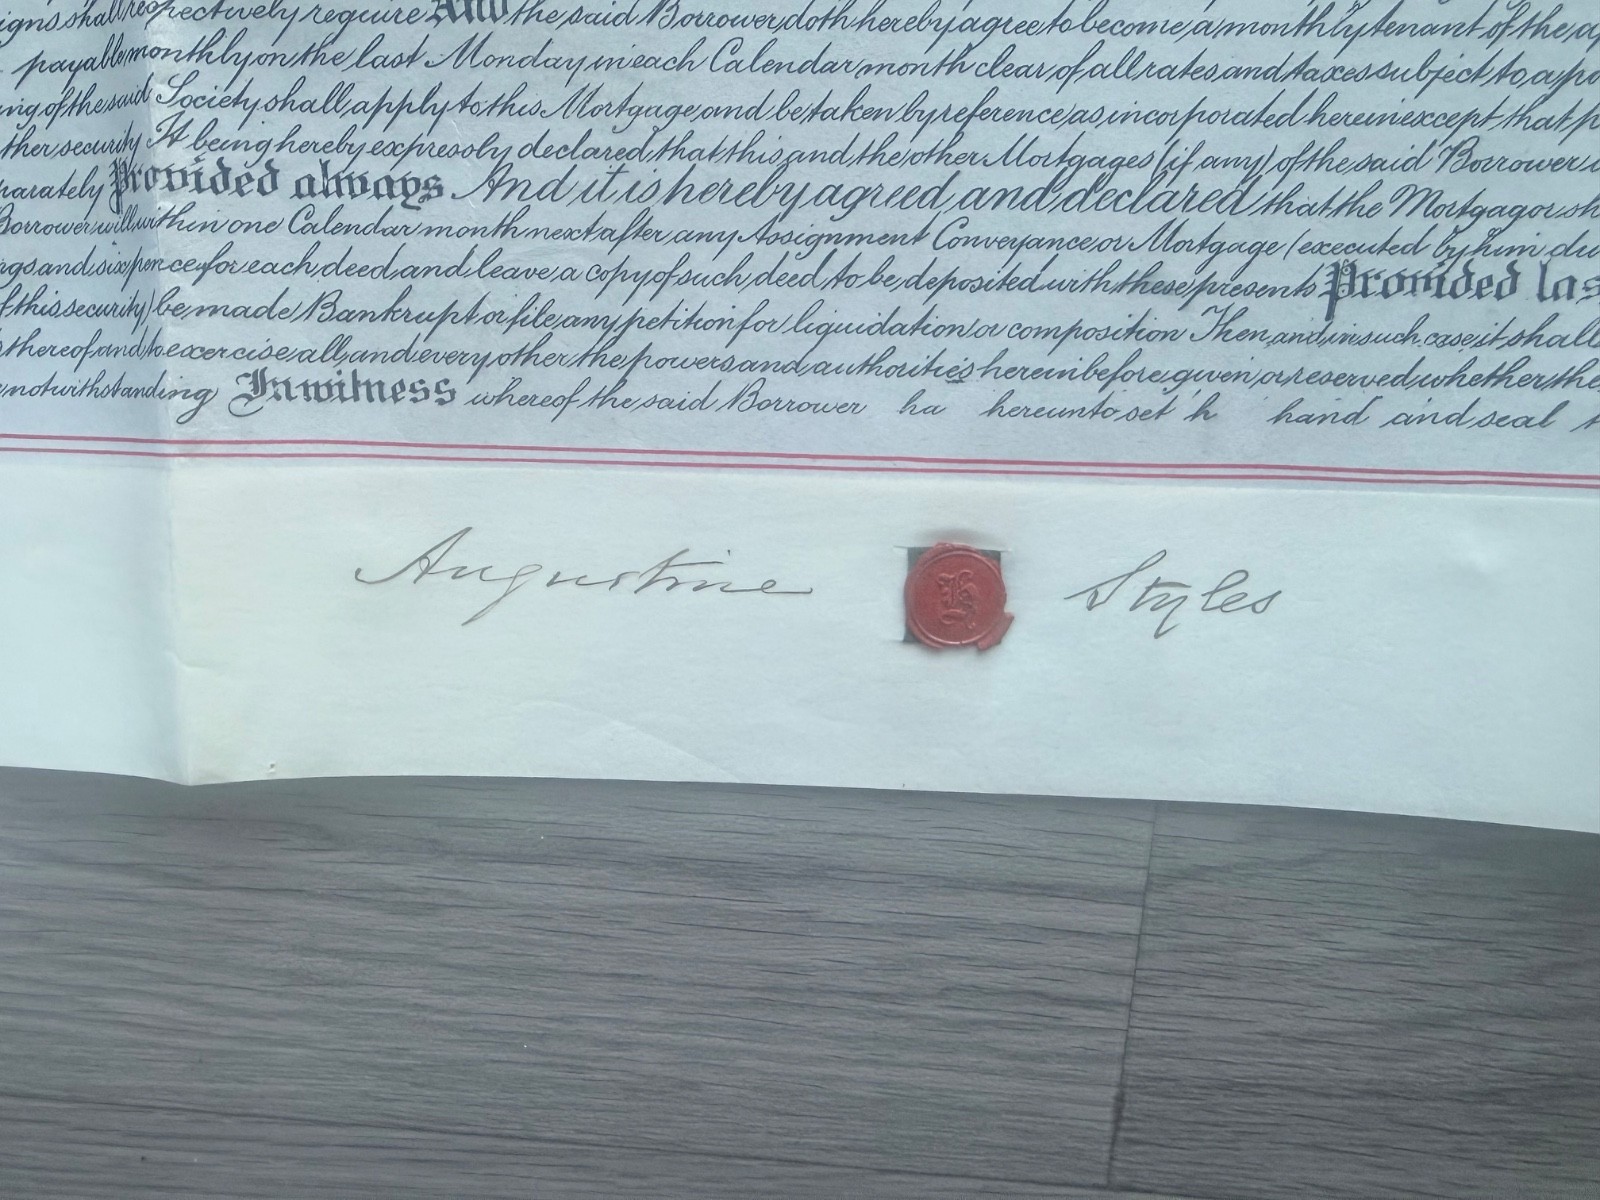 shall respectively require And the said Borrower doth hereby agree to become a monthly tenant of the
payable monthly on the last Monday in each Calendar month clear of all rates and taxes subject to a
of the said Society shall apply to this Mortgage and be taken by reference as incorporated herein except that
security It being hereby expressly declared that this and the other Mortgages (if any) of the said Borrower
Provided always And it is hereby agreed and declared that the Mortgagor
Borrower will within one Calendar month next after any Assignment Conveyance or Mortgage (executed by him
and sixpence for each deed and leave a copy of such deed to be deposited with these presents Provided
of this security) be made Bankrupt or file any petition for liquidation or composition Then and in such case it shall
thereof and to exercise all and every other the powers and authorities hereinbefore given or reserved whether the
notwithstanding In witness whereof the said Borrower ha hereunto set h hand and seal
Augustine Styles